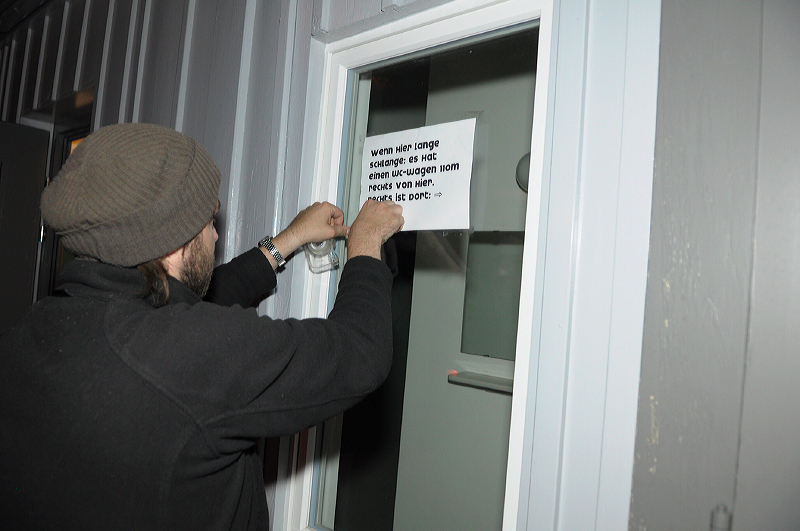 wenn Hier Lange
schlange: es Hat
einen wc-wagen 110m
rechts von Hier.
rechts ist Dort: ⇨